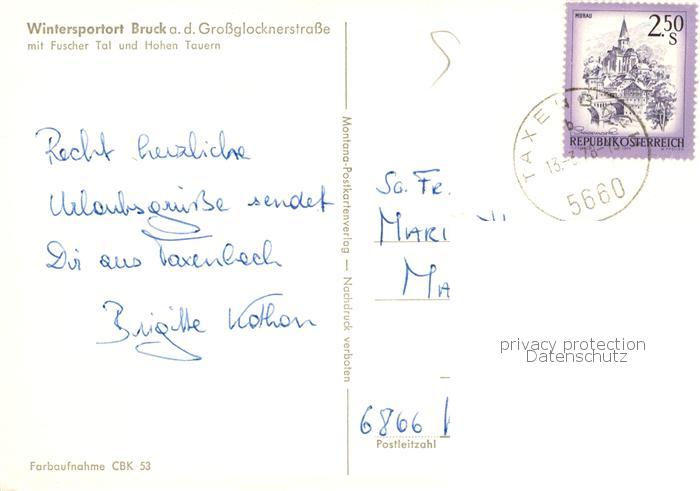 Wintersportort Bruck a. d. Großglocknerstraße
mit Fuscher Tal und Hohen Tauern
Recht herzliche
Urlaubsgrüße sendet
Dir aus Taxenbach
Brigitte Kothan
Farbaufnahme CBK 53
Montana-Postkartenverlag — Nachdruck verboten
MURAU
2.50
S
REPUBLIK ÖSTERREICH
TAXENB
b
13.
5660
So. Fr.
MARI
MA
privacy protection
Datenschutz
6866
Postleitzahl